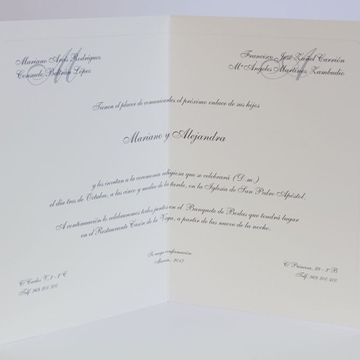 Mariano Arias Rodríguez
Consuelo Beltrán López
Francisco José Zaragoza Carrión
Mª Angeles Martínez Zambudio
Tienen el placer de comunicarles el próximo enlace de sus hijos
Mariano y Alejandra
y les invitan a la ceremonia religiosa que se celebrará (D.m.)
el día tres de Octubre, a las cinco y media de la tarde, en la Iglesia de San Pedro Apóstol.
A continuación lo celebraremos todos juntos en el Banquete de Bodas que tendrá lugar
en el Restaurante Torre de la Vega, a partir de las nueve de la noche.
Se ruega confirmación
Murcia, 2015
Tlf.
Tlf.